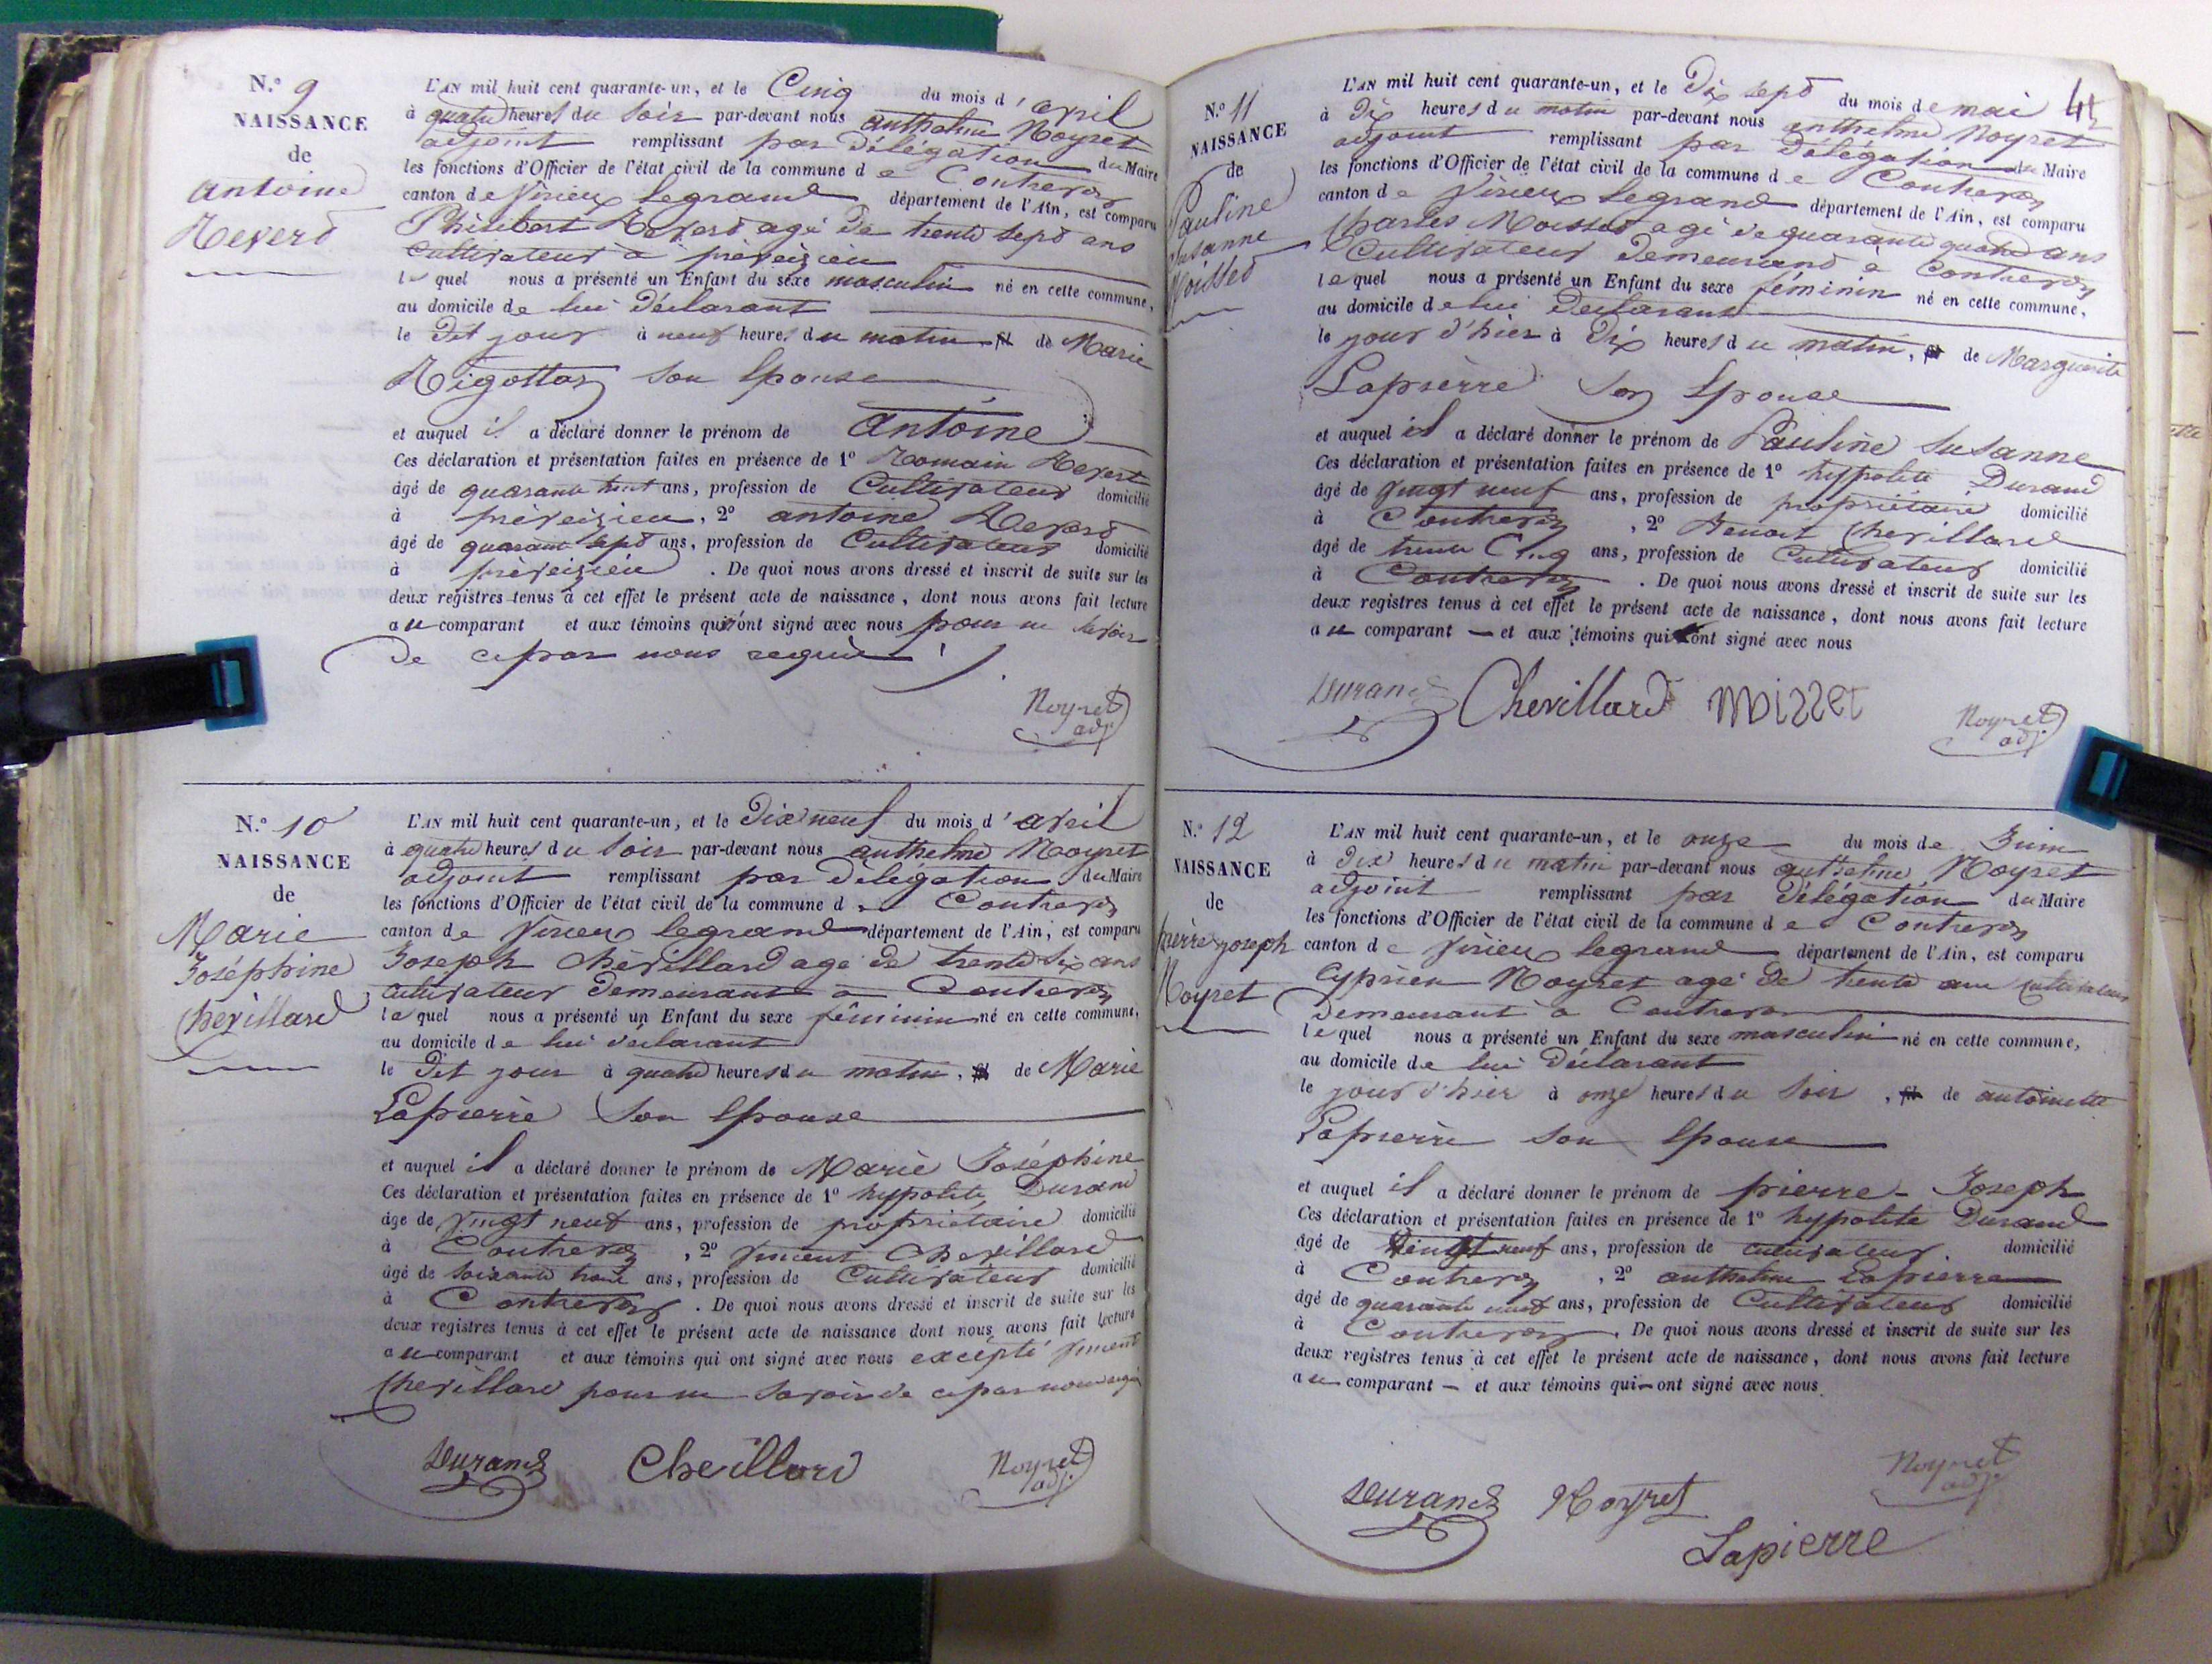 N.º 9
NAISSANCE
de
antoine
Reverd
L'AN mil huit cent quarante-un, et le Cinq du mois d'avril
à quatre heures du soir par-devant nous anthelme Noyret
adjoint remplissant par Délégation du Maire
les fonctions d'Officier de l'état civil de la commune de Contrevoz
canton de Virieux legrand département de l'Ain, est comparu
Philibert Reverd agé de trente sept ans
cultivateur à préveizieu
lequel nous a présenté un Enfant du sexe masculin né en cette commune,
au domicile de lui déclarant
le Dit jour à neuf heures du matin fil de Marie
Rigottaz son Epouse
et auquel il a déclaré donner le prénom de Antoine
Ces déclaration et présentation faites en présence de 1º Romain Revert
âgé de quarante huit ans, profession de Cultivateur domicilié
à préveizieu, 2º antoine Reverd
âgé de quarante sept ans, profession de Cultivateur domicilié
à préveizieu. De quoi nous avons dressé et inscrit de suite sur les
deux registres tenus à cet effet le présent acte de naissance, dont nous avons fait lecture
au comparant et aux témoins qui n'ont signé avec nous pour ne savoir
de ce par nous requis
Noyret
adj.
N.º 10
NAISSANCE
de
Marie
Joséphine
Chevillard
L'AN mil huit cent quarante-un, et le Dix neuf du mois d'avril
à quatre heures du soir par-devant nous anthelme Noyret
adjoint remplissant par délégation du Maire
les fonctions d'Officier de l'état civil de la commune de Contrevoz
canton de Virieux legrand département de l'Ain, est comparu
Joseph Chévillard agé de trente six ans
cultivateur demeurant à Contrevoz
lequel nous a présenté un Enfant du sexe féminin né en cette commune,
au domicile de lui déclarant
le Dit jour à quatre heures du matin, fil de Marie
Lapierre son Epouse
et auquel il a déclaré donner le prénom de Marie Joséphine
Ces déclaration et présentation faites en présence de 1º hyppolite Durand
âgé de vingt neuf ans, profession de propriétaire domicilié
à Contrevoz, 2º vincent Chevillard
âgé de soixante ans, profession de Cultivateur domicilié
à Contrevoz. De quoi nous avons dressé et inscrit de suite sur les
deux registres tenus à cet effet le présent acte de naissance dont nous avons fait lecture
au comparant et aux témoins qui ont signé avec nous excépté vincent
Chevillard pour ne savoir de ce par nous requis
Durand Chevillard Noyret
adj.
44
N.º 11
NAISSANCE
de
Pauline
Susanne
Moisset
L'AN mil huit cent quarante-un, et le Dix sept du mois de mai
à Dix heures du matin par-devant nous anthelme Noyret
adjoint remplissant par Délégation du Maire
les fonctions d'Officier de l'état civil de la commune de Contrevoz
canton de Virieux legrand département de l'Ain, est comparu
Charles Moisset agé de quarante quatre ans
Cultivateur Demeurand à Contrevoz
lequel nous a présenté un Enfant du sexe féminin né en cette commune,
au domicile de lui Déclarant
le jour d'hier à Dix heures du matin, fil de Marguerite
Lapierre son Epouse
et auquel il a déclaré donner le prénom de Pauline Susanne
Ces déclaration et présentation faites en présence de 1º hyppolite Durand
âgé de vingt neuf ans, profession de propriétaire domicilié
à Contrevoz, 2º Benoit Chevillard
âgé de trente Cinq ans, profession de Cultivateur domicilié
à Contrevoz. De quoi nous avons dressé et inscrit de suite sur les
deux registres tenus à cet effet le présent acte de naissance, dont nous avons fait lecture
au comparant – et aux témoins qui ont signé avec nous
Durand Chevillard Moisset Noyret
adj.
N.º 12
NAISSANCE
de
pierre joseph
Noyret
L'AN mil huit cent quarante-un, et le onze du mois de Juin
à Dix heures du matin par-devant nous anthelme Noyret
adjoint remplissant par Délégation du Maire
les fonctions d'Officier de l'état civil de la commune de Contrevoz
canton de Virieux legrand département de l'Ain, est comparu
Cyprien Noyret agé de trente ans cultivateur
Demeurant à Contrevoz
lequel nous a présenté un Enfant du sexe masculin né en cette commune,
au domicile de lui Déclarant
le jour d'hier à onze heures du soir, fil de antoinette
Lapierre son Epouse
et auquel il a déclaré donner le prénom de pierre - Joseph
Ces déclaration et présentation faites en présence de 1º hyppolite Durand
âgé de vingt neuf ans, profession de cultivateur. domicilié
à Contrevoz, 2º anthelme Lapierre
âgé de quarante neuf ans, profession de Cultivateur domicilié
à Contrevoz. De quoi nous avons dressé et inscrit de suite sur les
deux registres tenus à cet effet le présent acte de naissance, dont nous avons fait lecture
au comparant – et aux témoins qui – ont signé avec nous.
Durand Noyret Noyret
adj.
Lapierre